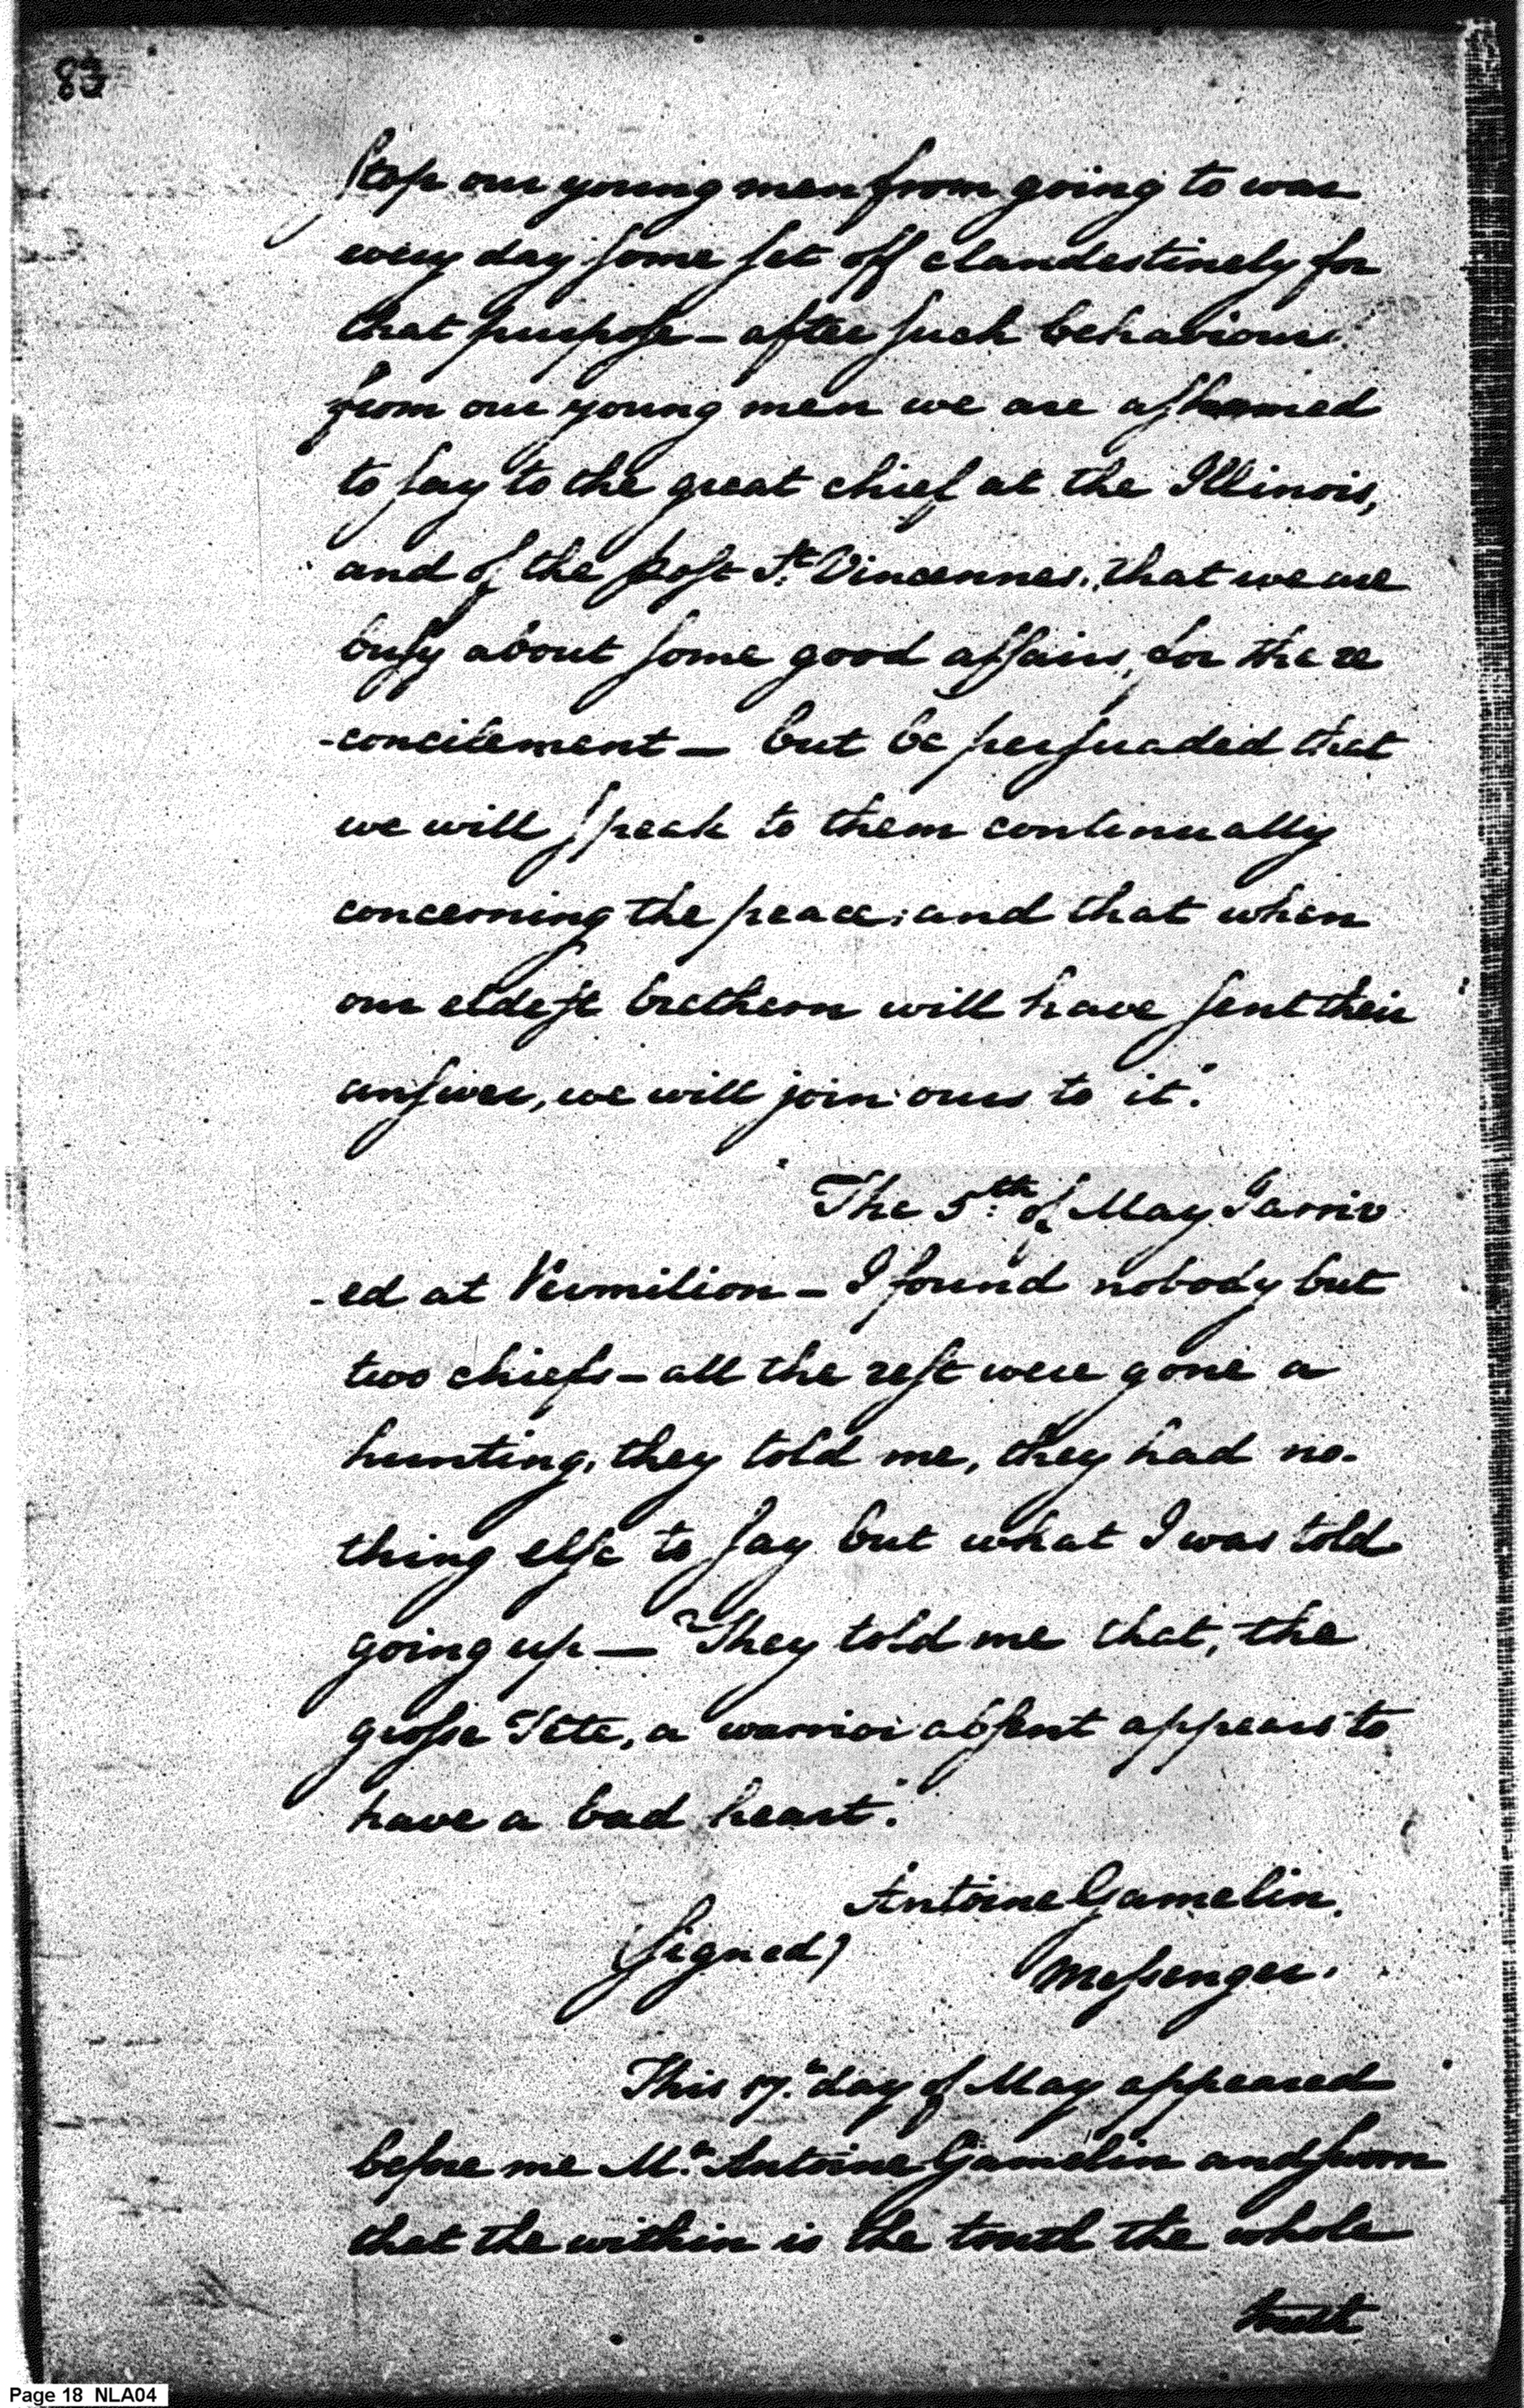 83
stop our young men from going to war
every day some set off clandestinely for
that purpose – after such behaviour
from our young men we are ashamed
to say to the great chief at the Illinois,
and of the post St. Vincennes, that we are
busy about some good affairs, for the re
-concilement – but be persuaded that
we will speak to them continually
concerning the peace; and that when
our eldest brethern will have sent their
answer, we will join ours to it."
The 5th. of May I arriv
-ed at Vermilion – I found nobody but
two chiefs – all the rest were gone a
hunting, they told me, they had no-
thing else to say but what I was told
going up – "They told me that, the
grosse Tête, a warrior absent appears to
have a bad heart."
Antoine Gamelin.
(signed) Messenger.
This 17th. day of May appeared
before me Mr. Antoine Gamelin and sworn
that the within is the truth the whole
truth
Page 18 NLA04